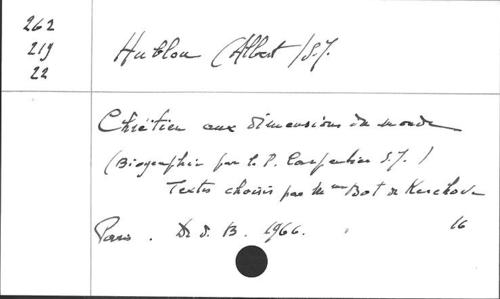 262
219
22
Hublou (Albert) S.J.
Chrétien aux dimensions du monde
(Biographie par le P. Carpentier S.J.)
Textes choisis par Mme Bot de Kerchove
Paris. D. d. B. 1966. 16